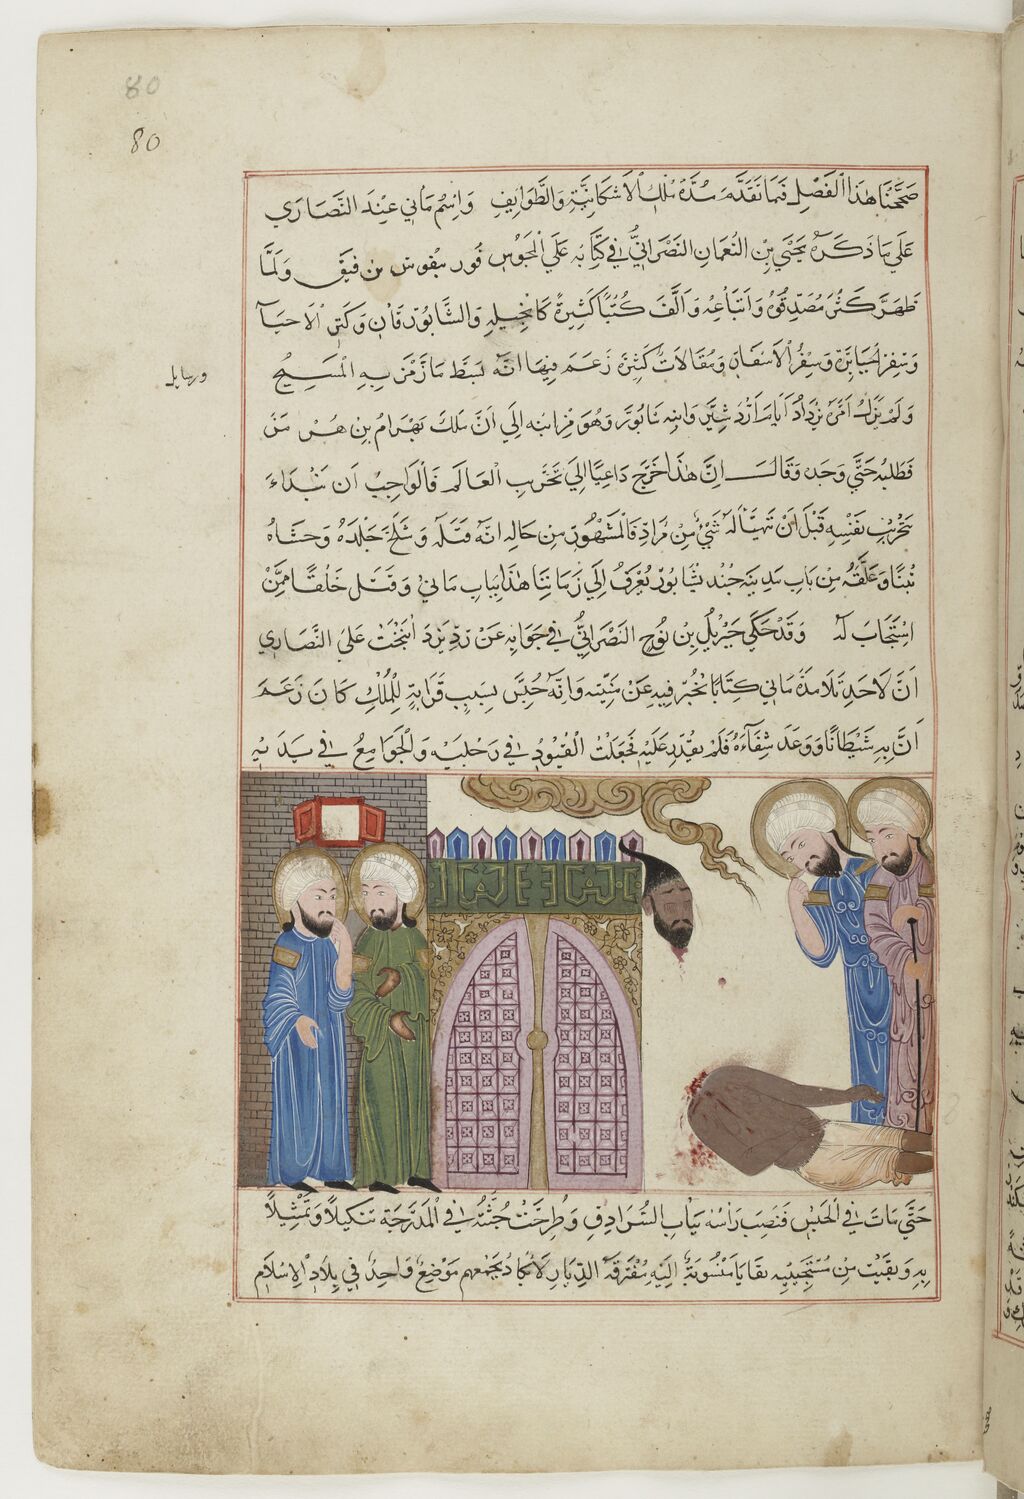 80
80
صَحَّحْنَا هٰذَا الْفَصْلِ فِيمَا تَقَدَّمَ مُدَّةُ مُلْكِ الاَشكَانِيَّةِ وَالطَّوَايِفِ وَاسْمُ مَانِي عِنْدَ النَّصَارَي
عَلَي مَا ذَكَرَهُ يَحْيَي بْنِ النُّعمَانِ النَصْرَانِيُّ فِي كِتَابِهِ عَلَي الْمَجُوْسِ قُورىىقوس ىن فىىق وَلَمَّا
ظَهَرَ كَثُرَ مُصَدِّقُوْهُ وَاَتبَاعُهُ وَاَلَّفَ كُتُبًا كَثِيرَةً كَاِنْجِيلِهِ وَالشَّابُورقَانِ وَكَنْزِ الاَحيَآ
وَسِفرِ الجَبَابِرَةِ وَسِفْرِ الاَسفَارِ وَمَقَالَاتٍ كَثِيْرَةٍ زَعَمَ فِيْهَا اَنَّهُ بَسَطَ مَا رَمَزَ بِهِ الْمَسِيحُ
ورسايل
وَلَمْ يَزَلْ اَمْرُهُ يَزْدَادُ اَيَّامَ اَرْدَشِيْرَ وَابنِهِ سَابُورَ وَهُوَمُز ابنِهِ اِلَي اَنْ مَلَكَ بَهْرَامُ بْنِ هُرمَز
فَطَلَبَهُ حَتَّي وَجَدَهُ وَقَالَ اِنَّ هٰذَا خَرَجَ دَاعِيًا اِلَي تَخْرِيبِ الْعَالَمِ فَالْوَاجِبُ اَن نَبْدَاءَ
بِتَخْرِيْبِ نَفْسِهِ قَبْلَ اَنْ يَتَهَيَّأَ لَهُ شَئٌ مِنْ مُرَادِهِ فَالْمَشْهُورُ مِنْ حَالِهِ اَنَّهُ قَتَلَهُ وَسَلَخَ جِلْدَهُ وَحَشَاهُ
تِبْنًا وَعَلَّقَهُ مِنْ بَابِ مَدِينَةِ جُنْدِيْشَابُورَ يُعْرَفُ اِلَي زَمَانِنَا هٰذَا بِبَابِ مَانِي وَقَتَلَ خَلْقًا مِمَّنْ
اسْتَجَابَ لَهُ وَقَدْ حَكَي جِبْرِيْلُ بْنِ نُوْحٍ النَصْرَانِيُّ فِي جَوَابِهِ عَنْ رَدِّ يَزْدَانْبَخْتَ عَلَى النَّصَارَي
اَنَّ لِاَحَدِ تَلَامِذَةِ مَانِي كِتَابًا يُخْبِرُ فِيهِ عَنْ مَيِّتِهِ وَاَنَّهُ حُبِسَ بِسَبَبِ قَرَابَةٍ لِلْمُلْكِ كَانَ زَعَمَ
اَنَّ بِهِ شَيْطَانًا وَوَعَدَ شِفَآءَهُ فَلَمْ يَقْدِر عَلَيْهِ فَجُعِلَتِ الْقُيُودُ فِي رِجْلَيْهِ وَالْجَوَامِعُ فِي يَدَيْهِ
حَتَّي مَاتَ فِي الْحَبْسِ فَنُصِبَ رَاسُهُ بِبَابِ السُّرَادِقِ وَطُرِحَتْ جُثَّتُهُ فِي الْمَدْرَجَةِ تَنْكِيلًا وَتَمْثِيْلًا
بِهِ وَبَقِيَتْ مِنْ مُسْتَجِيْبِيْهِ بَقَايَا مَنْسُوبَةٌ اِلَيْهِ مُفتَرِقَةُ الدِّيَارِ لَا يَكَادُ يَجْمَعُهُم مَوْضِعٌ وَاحِدٌ فِي بِلَادِ الْاِسْلَامِ